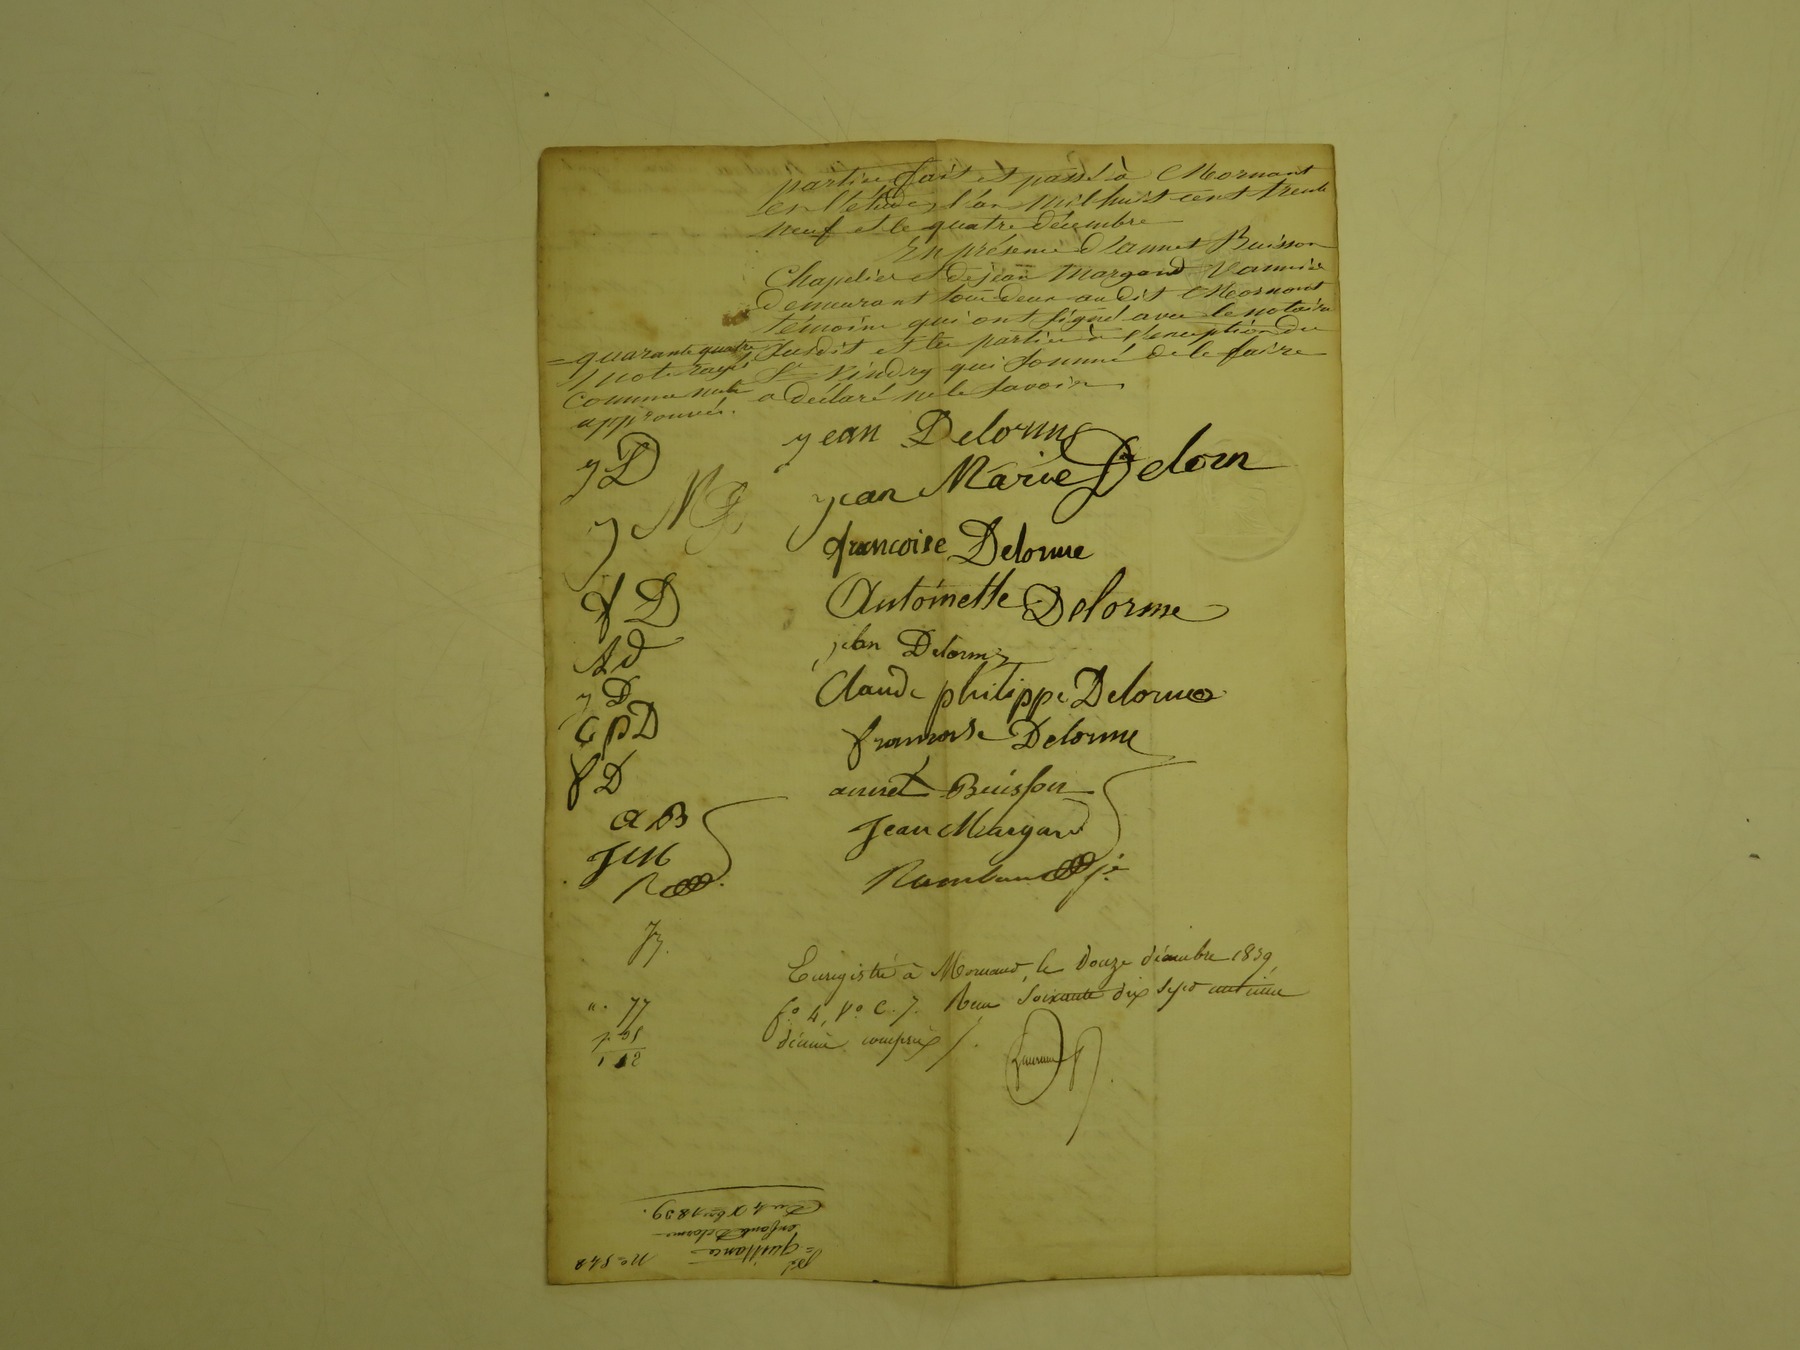 partie fait et passé à Mornant
en l'étude, l'an mil huit cent trente
neuf et le quatre décembre
En présence d'annet Buisson
Chapelier et de jean Margand Vannier
demeurant tous deux audit Mornant
témoins qui ont signé avec le notaire
susdit et les parties à l'exception du
Sr Vindry qui sommé de le faire
a déclaré ne le savoir
= quarante quatre
mots rayés
comme nuls
approuvés.
jean Delorme
yD
jean Marie Delorm
y M D
francoise Delorme
f D
Antoinette Delorme
Ad
jean Delorme
y D
Claude philippe Delorme
C p D
francoise Delorme
f D
annet Buisson
a B
Jean Margand
J M
R
Enregistré à Mornant, le douze décembre 1839
fo 4, Vo C. 7. Reçu soixante dix sept centimes
décime compris
77
No 542
quittance
enfants Delorme
Du 4 Xbre 1839.